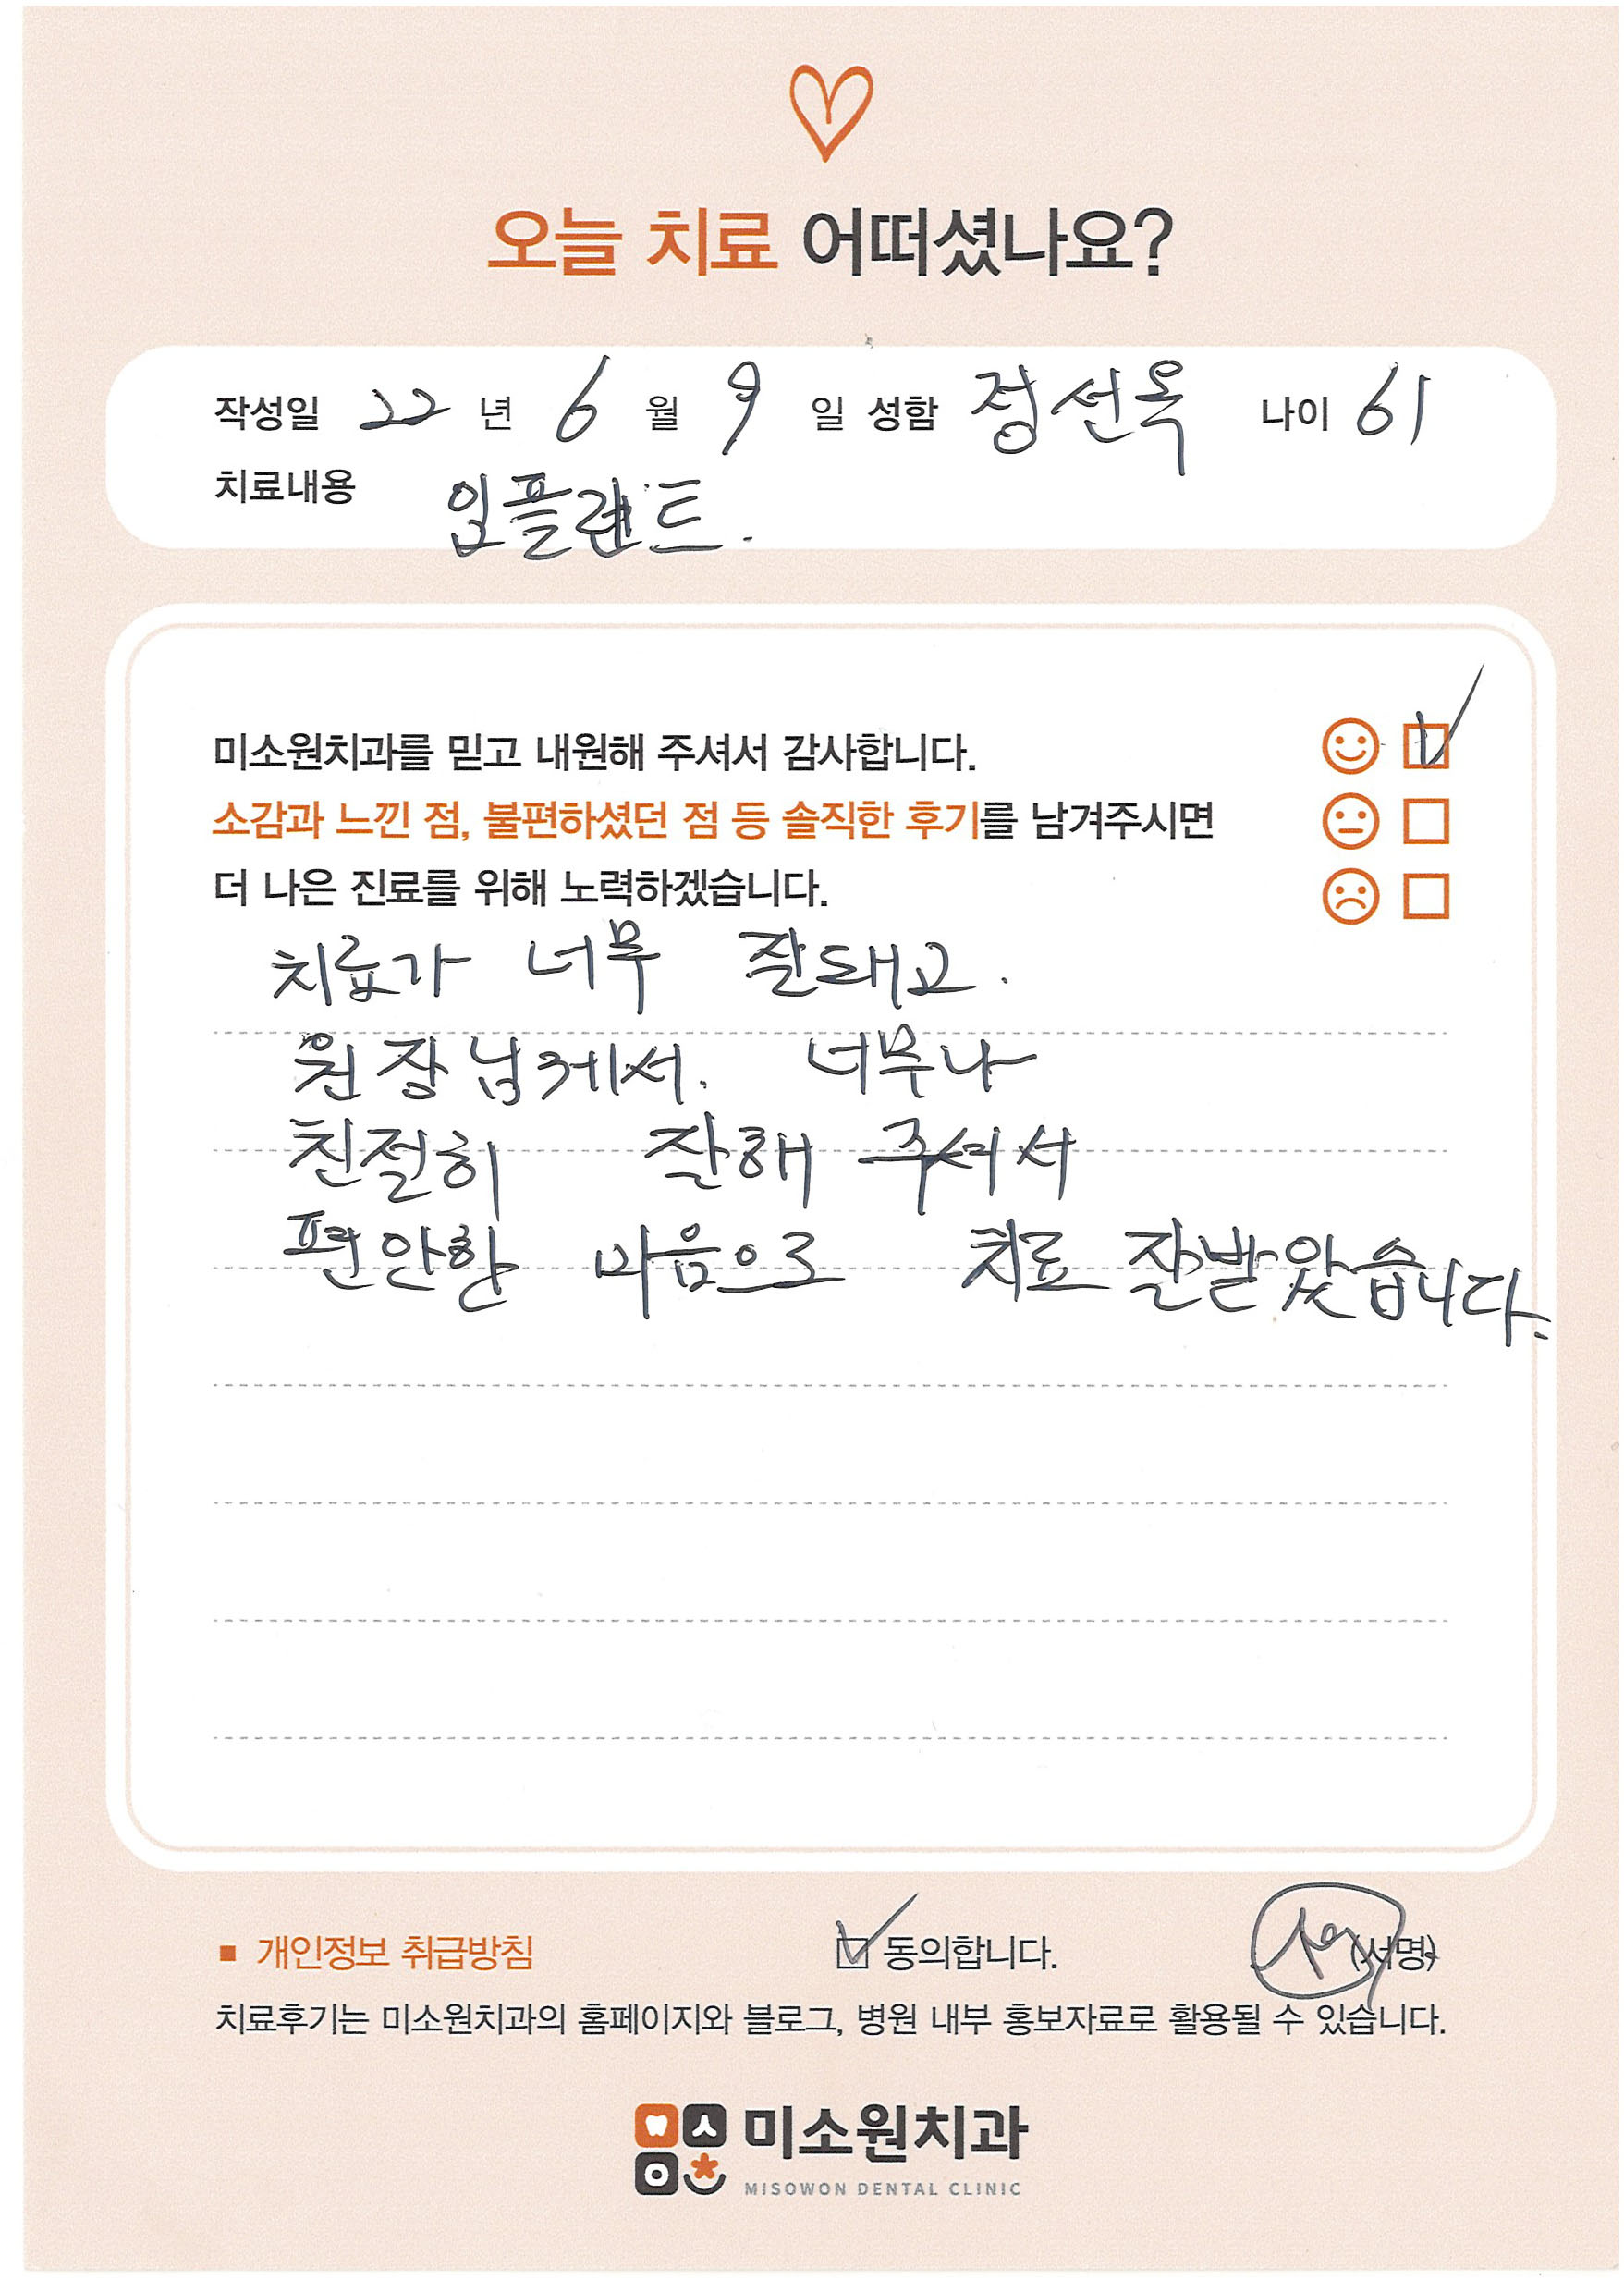 오늘 치료 어떠셨나요?
작성일 22 년 6 월 9 일 성함 정선옥 나이 61
치료내용 임플랜트.
미소원치과를 믿고 내원해 주셔서 감사합니다.
소감과 느낀 점, 불편하셨던 점 등 솔직한 후기를 남겨주시면
더 나은 진료를 위해 노력하겠습니다.
치료가 너무 잘돼고.
원장님께서. 너무나
친절히 잘해 주셔서
편안한 마음으로 치료 잘받았습니다.
■ 개인정보 취급방침 동의합니다. (서명)
치료후기는 미소원치과의 홈페이지와 블로그, 병원 내부 홍보자료로 활용될 수 있습니다.
미소원치과
MISOWON DENTAL CLINIC